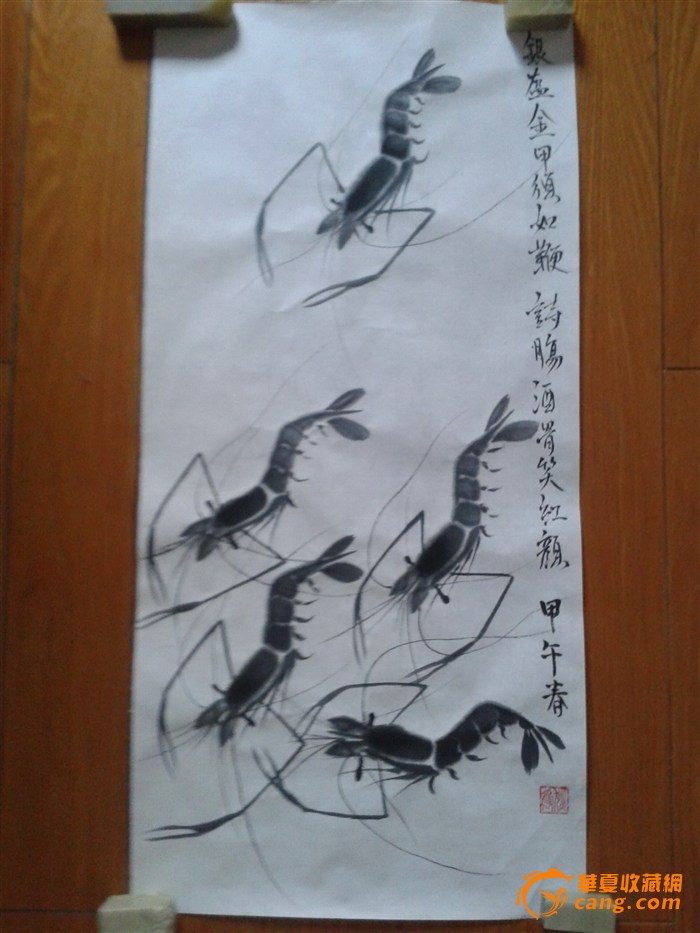 銀盔金甲須如鞭 詩腸酒胃笑紅顏 甲午春
華夏收藏網
cang.com